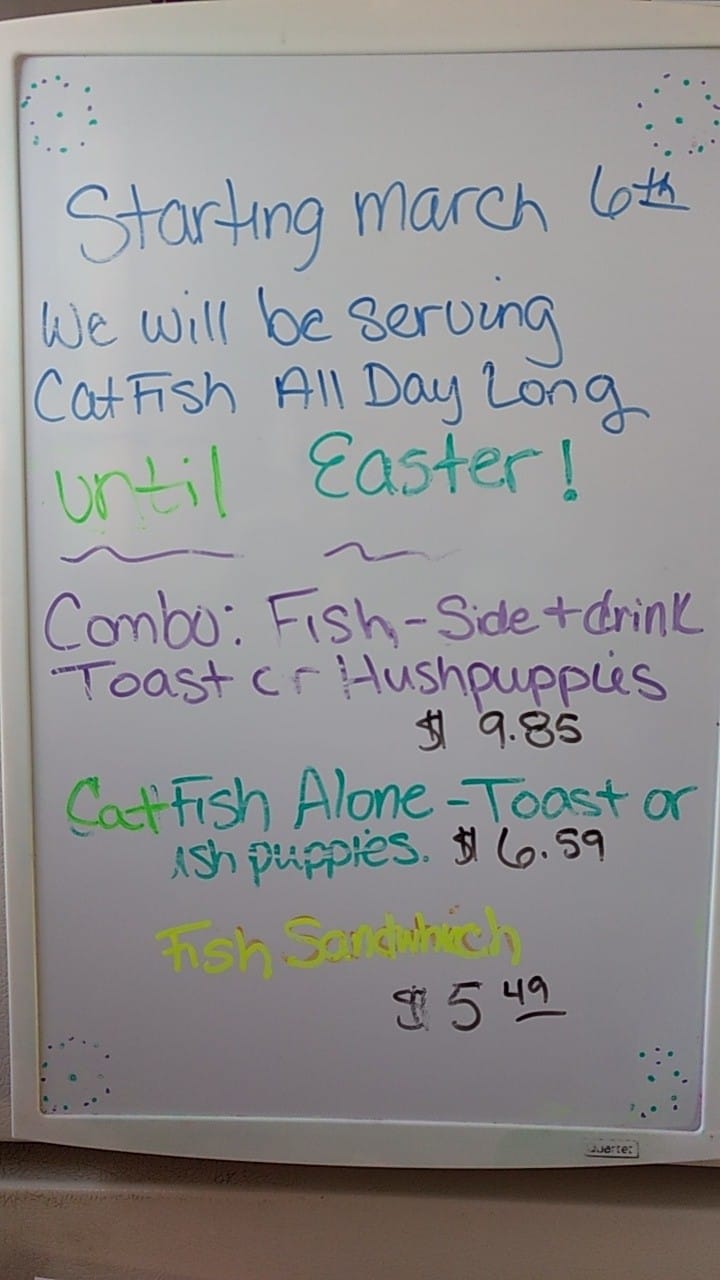 Starting march 6th
We will be serving
CatFish All Day Long
until Easter!
Combo: Fish-Side+drink
Toast or Hushpuppies
$ 9.85
CatFish Alone-Toast or
ish puppies. $ 6.59
Fish Sandwhich
$ 5 49
Quartet